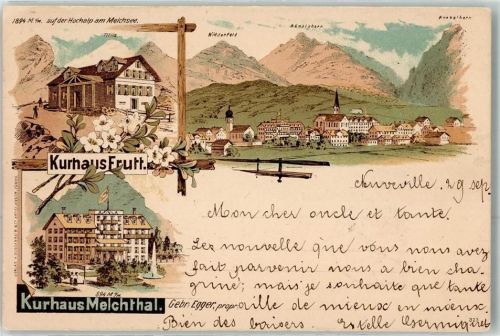 1894 M/m. auf der Hochalp am Melchsee.
Titlis
Widderfeld
Nünalphorn
KurhausFrutt.
Neuveville, 29 sep.
Mon cher oncle et tante.
Les nouvelle que vous nous avez
fait parvenir nous a bien cha-
grine; mais je souhaite que tante
aille de mieux en mieux.
Bien des baisers. Estelle
894 M/m
Kurhaus Melchthal. Gebr. Egger, propr.